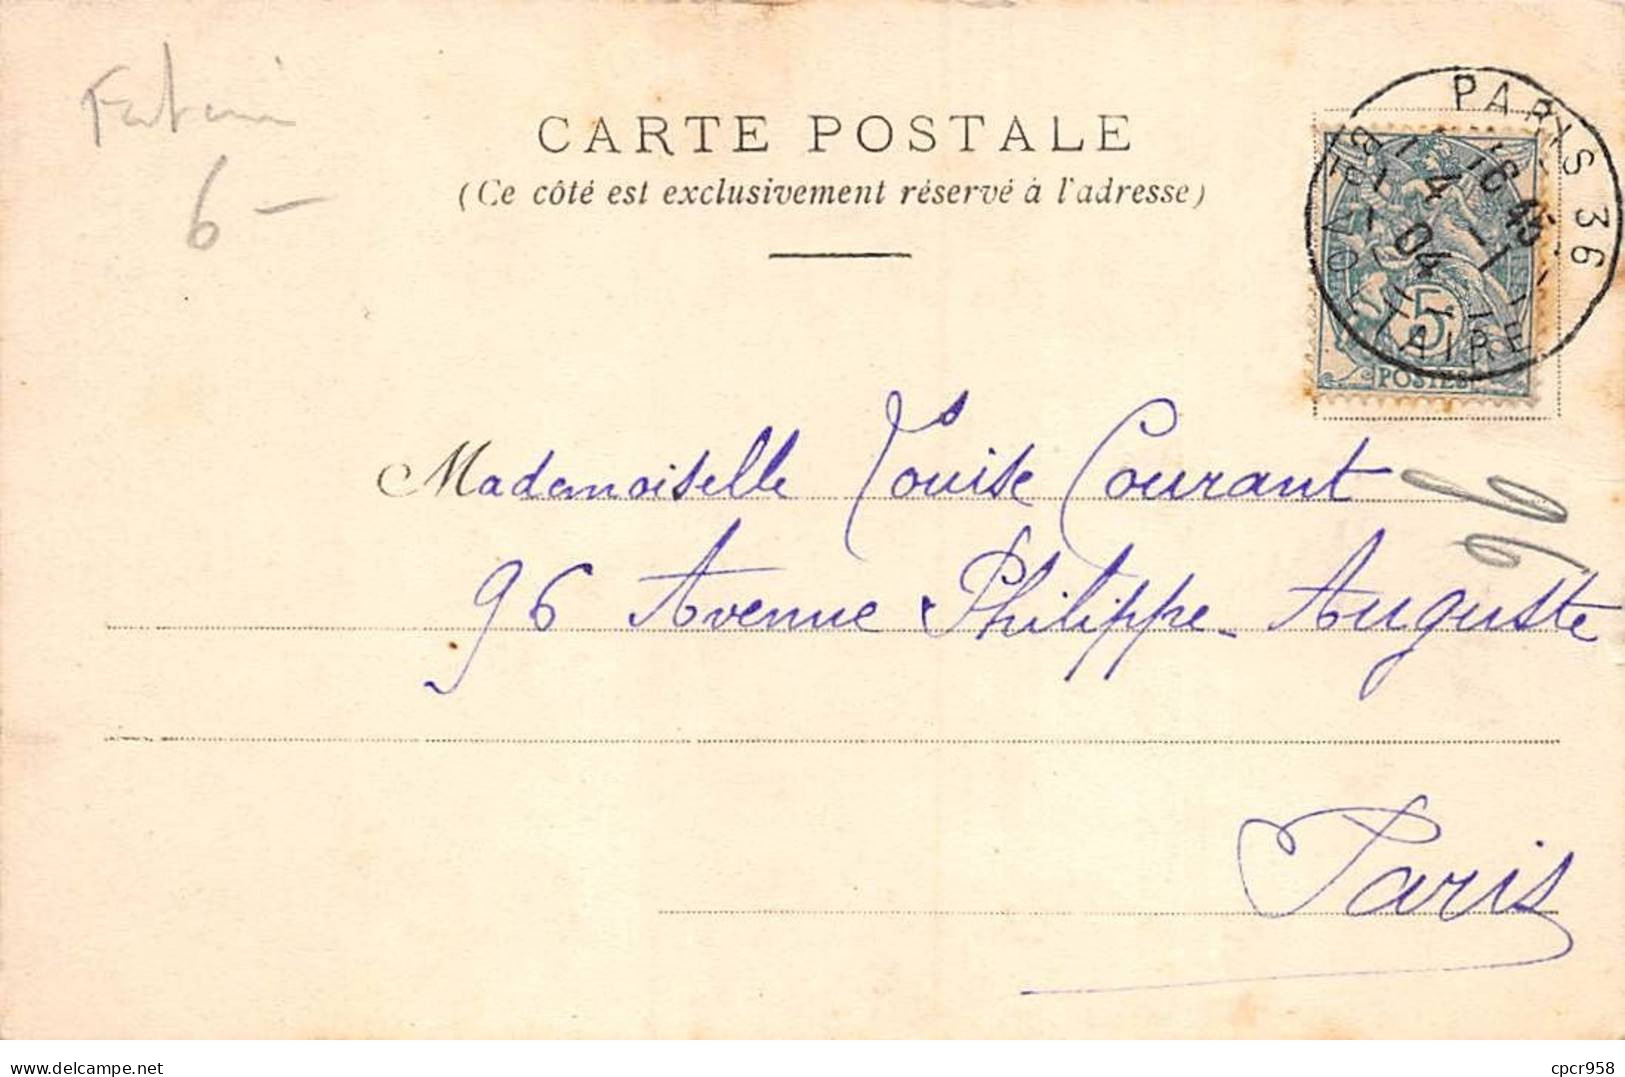 6 -
CARTE POSTALE
(Ce côté est exclusivement réservé à l'adresse)
PARIS 36
16 45
4 - 1
04
BD VOLTAIRE
5
POSTES
Mademoiselle Louise Courant
96 Avenue Philippe-Auguste
Paris
cpcr958